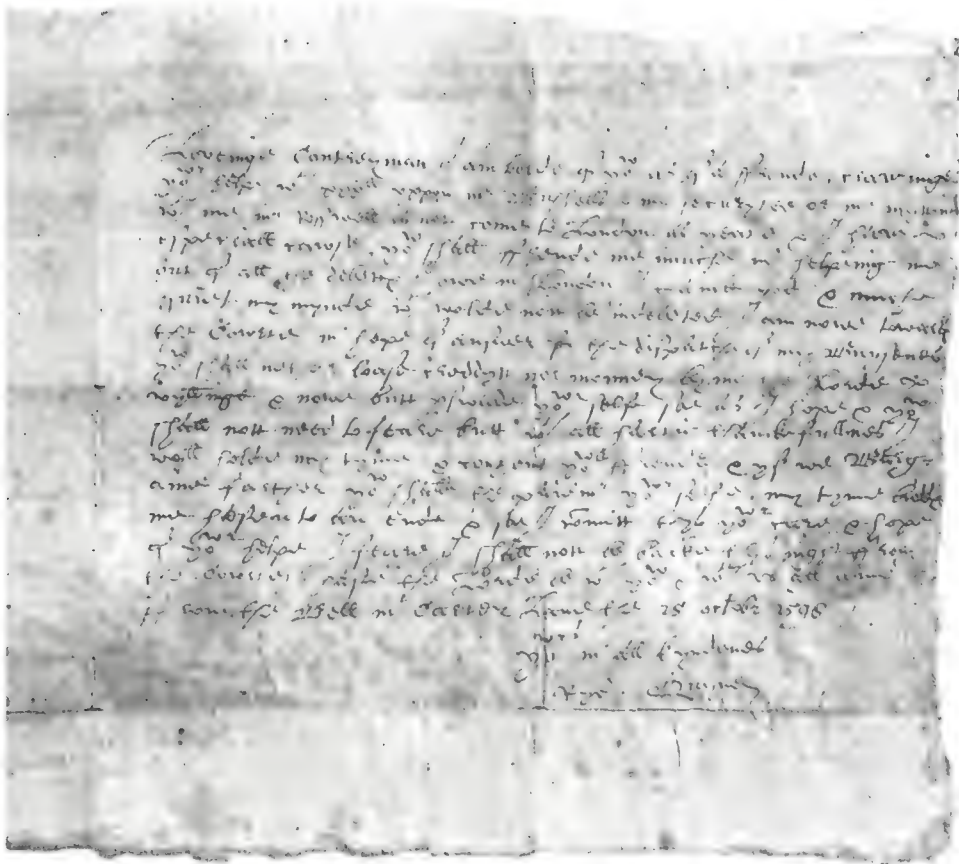 Loveinge Contreyman I am bolde of yow as of a ffrende, craveinge
yowr helpe wth xxxll vppon mr Bushells & my securytee or mr myttons
wth me mr Rosswell is nott come to London as yeate & I have
especiall cawse yow shall ffrende me muche in helpeing me
out of all the debttes I owe in London I thancke god & muche
quiet my mynde wch wolde nott be indebeted I am nowe towardes
the Cowrte in hope of answer for the dispatche of my Buysenes
yow shall nether loase creddytt nor monney by me the Lorde
wyllinge & nowe butt perswade yowr selfe soe as I hope & yow
shall nott need to feare butt wth all hartie thanckefullnes I
wyll holde my tyme & content yowr ffrende & yf we Barg
aine farther yow shalbe the paiemr yowr selfe. my tyme biddes
me hasten to an ende & soe I committ thys yowr care & hope
of yowr helpe I feare I shall nott be backe thys night ffrom
the Cowrte. haste the Lorde be wth yow & wth vs all amen
ffrom the Bell in Carter Lane the 25 octobr 1598
yowrs in all kyndenes
Ryc. Quyney